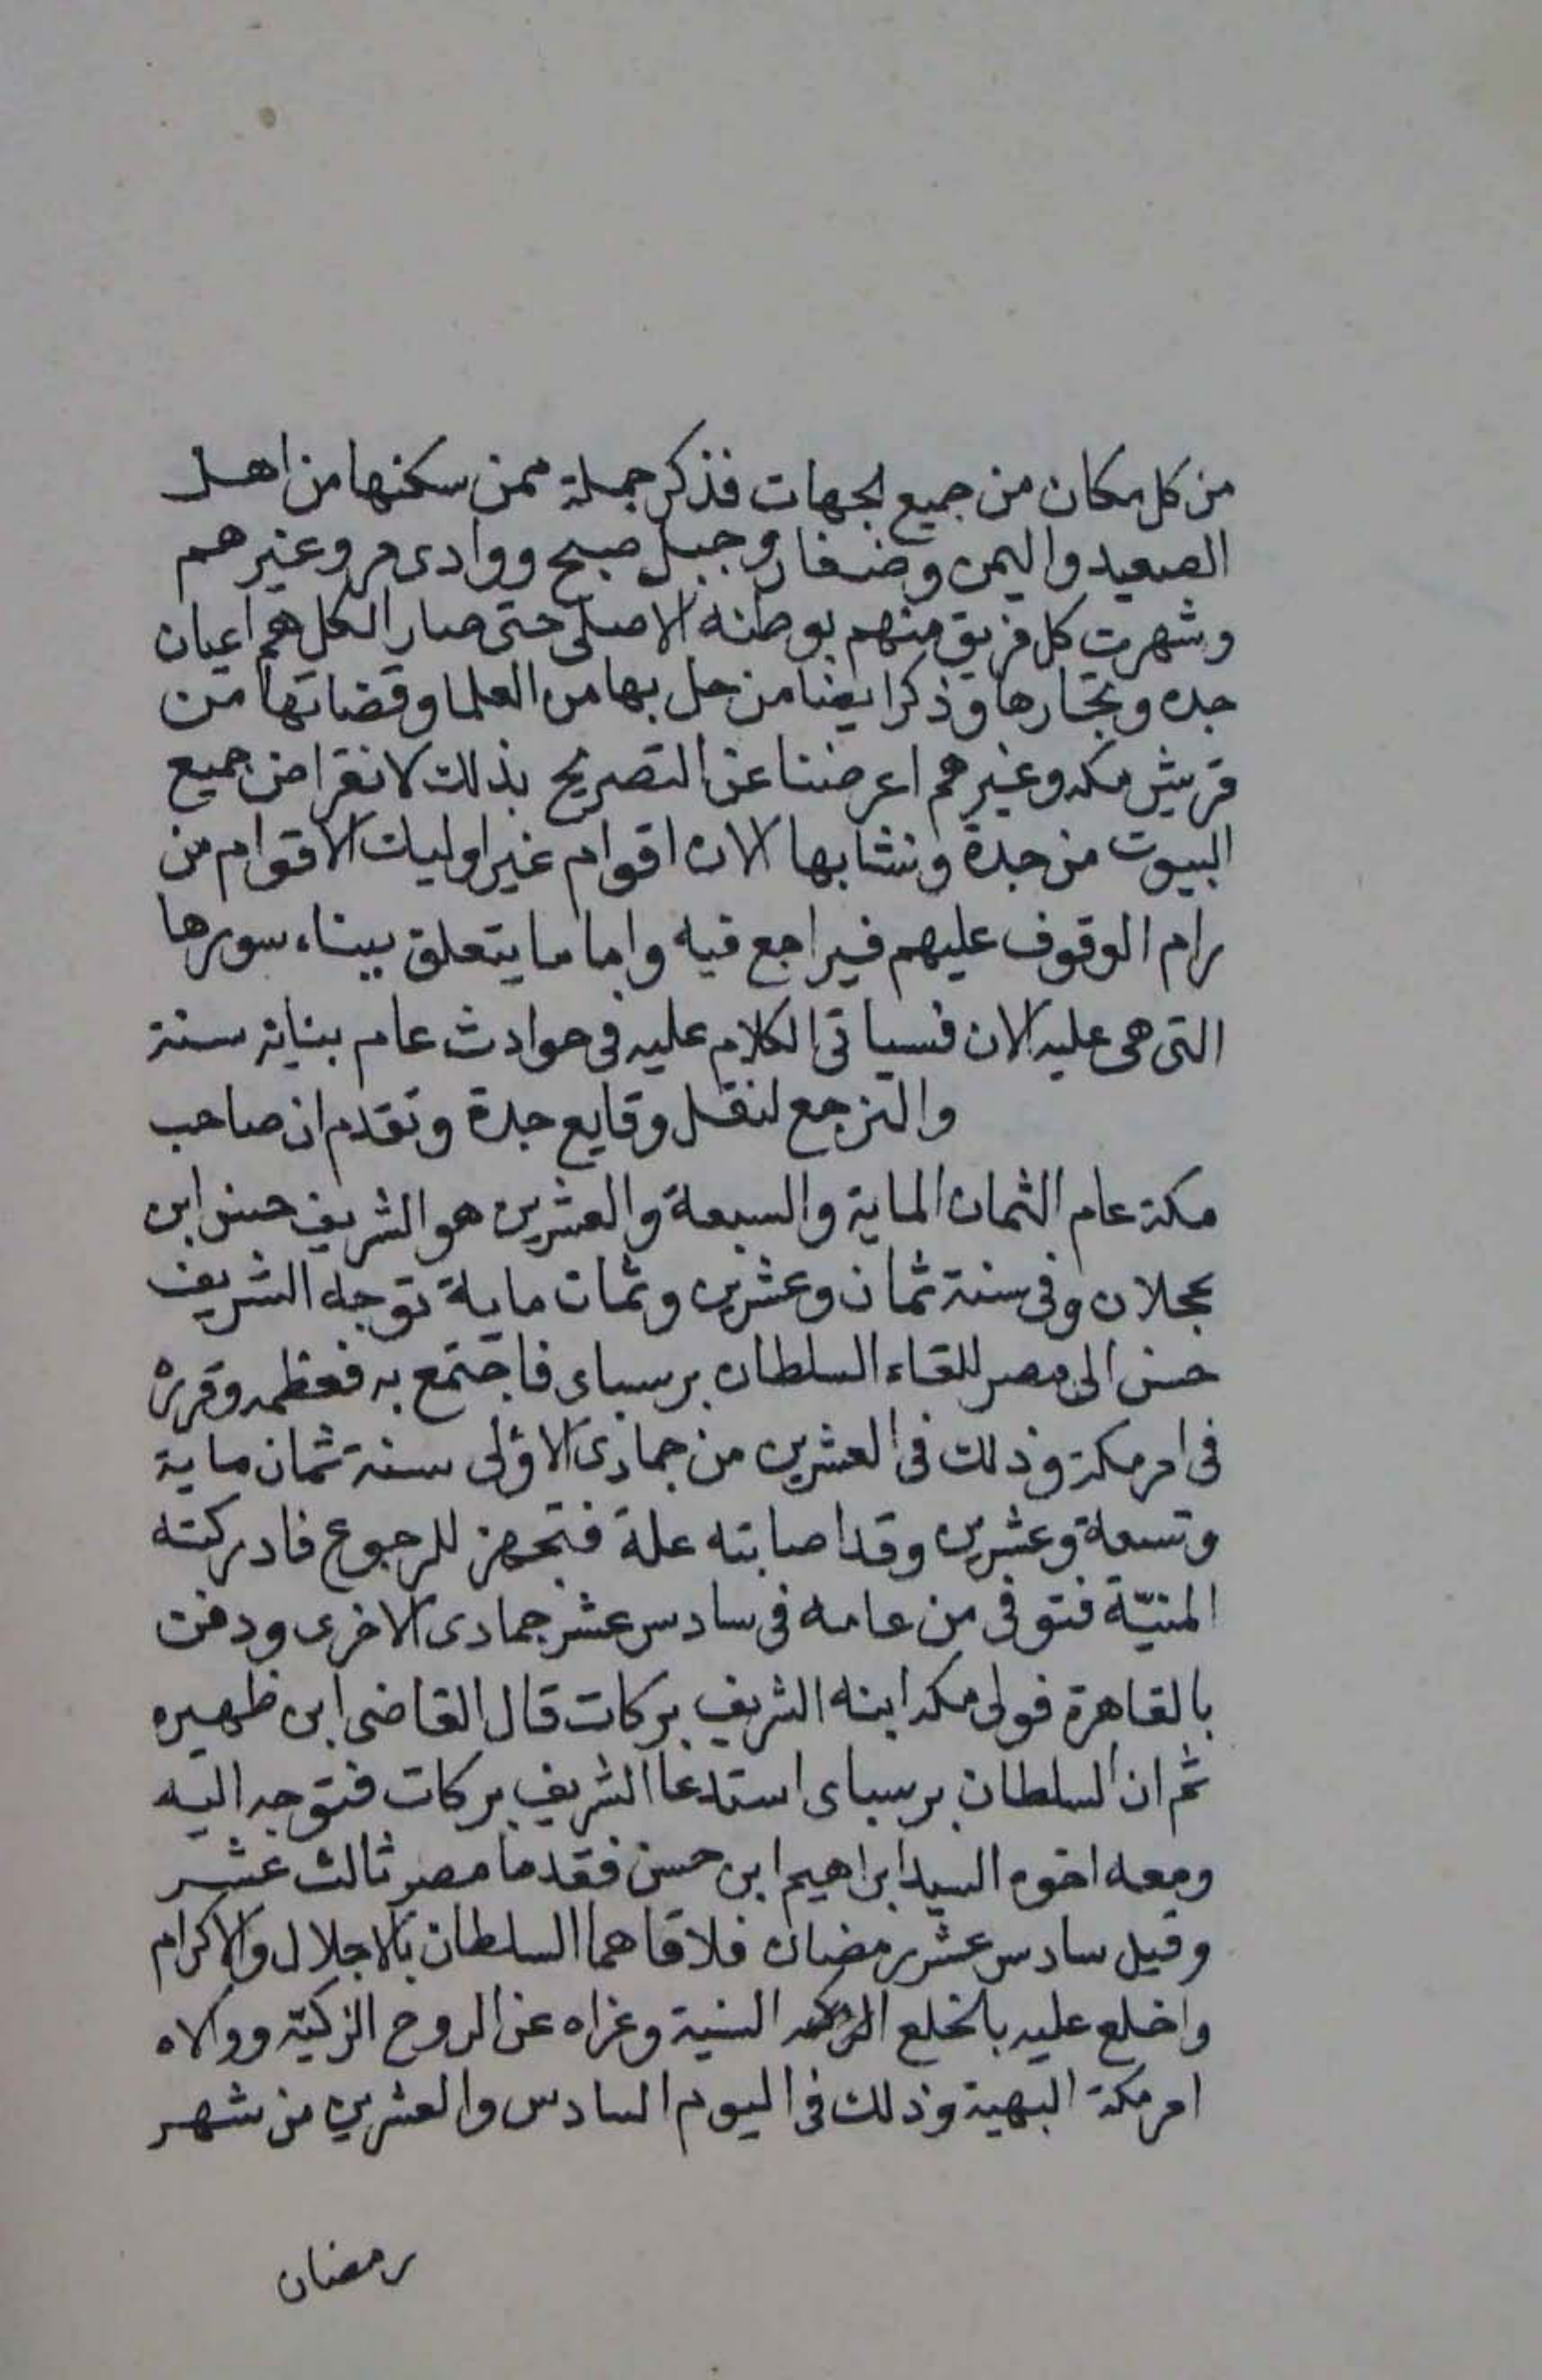 من كل مكان من جميع لجهات فذكر جملة ممن سكنها من اهل
الصعيد واليمن وضفار وجبل صبح ووادى مر وغيرهم
وشهرت كل فريق منهم بوطنه الاصلى حتى صار الكل هم اعيان
جده وتجارها وذكر ايضا من حل بها من العلما وقضاتها من
قريش مكه وغيرهم اعرضنا عن التصريح بذلك لانقراض جميع
البيوت من جدة ونشا بها الان اقوام غير اوليات الاقوام من
رام الوقوف عليهم فيراجع فيه واما ما يتعلق ببناء سورها
التى هى عليه الان فسياتى الكلام عليه فى حوادث عام بنايه سنة
والنرجع لنقل وقايع جدة وتقدم ان صاحب
مكة عام الثمان الماية والسبعة والعشرين هو الشريف حسن ابن
عجلان وفى سنة ثمان وعشرين وثمان ماية توجه الشريف
حسن الى مصر للقاء السلطان برسباى فاجتمع به فعظمه وقرره
فى امر مكة وذلك فى العشرين من جمادى الاولى سنة ثمان ماية
وتسعة وعشرين وقد اصابته علة فتجهز للرجوع فادركته
المنيّة فتوفى من عامه فى سادس عشر جمادى الاخرى ودفن
بالقاهرة فولى مكه ابنه الشريف بركات قال القاضى ابن ظهيره
ثم ان السلطان برسباى استدعا الشريف بركات فتوجه اليه
ومعه اخوه السيد ابراهيم ابن حسن فقدما مصر ثالث عشر
وقيل سادس عشر رمضان فلاقاهما السلطان بالاجلال والاكرام
واخلع عليه بالخلع السنية وعزاه عن الروح الزكيّه وولاه
امر مكة البهية وذلك فى اليوم السادس والعشرين من شهر
رمضان